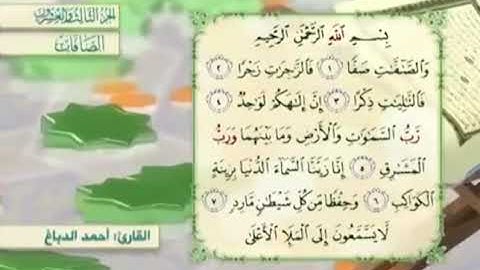 الجزء الثالث والعشرون
الصافات
بِسْمِ اللَّهِ الرَّحْمَٰنِ الرَّحِيمِ
وَالصَّافَّاتِ صَفًّا ١ فَالزَّاجِرَاتِ زَجْرًا ٢
فَالتَّالِيَاتِ ذِكْرًا ٣ إِنَّ إِلَٰهَكُمْ لَوَاحِدٌ ٤
رَّبُّ السَّمَاوَاتِ وَالْأَرْضِ وَمَا بَيْنَهُمَا وَرَبُّ
الْمَشَارِقِ ٥ إِنَّا زَيَّنَّا السَّمَاءَ الدُّنْيَا بِزِينَةٍ
الْكَوَاكِبِ ٦ وَحِفْظًا مِّن كُلِّ شَيْطَانٍ مَّارِدٍ ٧
لَّا يَسَّمَّعُونَ إِلَى الْمَلَإِ الْأَعْلَىٰ
القارئ: أحمد الدباغ